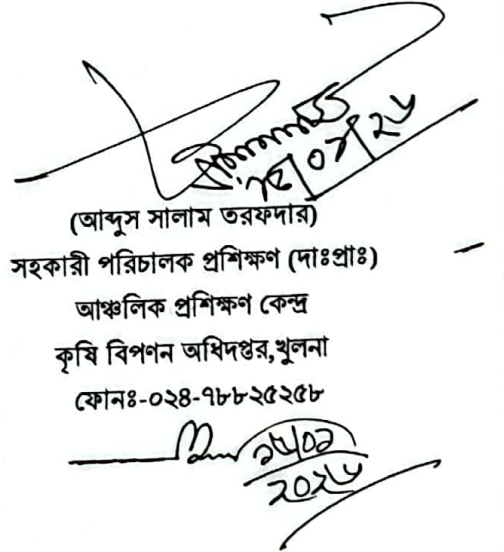 (আব্দুস সালাম তরফদার)
সহকারী পরিচালক প্রশিক্ষণ (দাঃপ্রাঃ)
আঞ্চলিক প্রশিক্ষণ কেন্দ্র
কৃষি বিপণন অধিদপ্তর,খুলনা
ফোনঃ-০২৪-৭৮৮২৫২৫৮